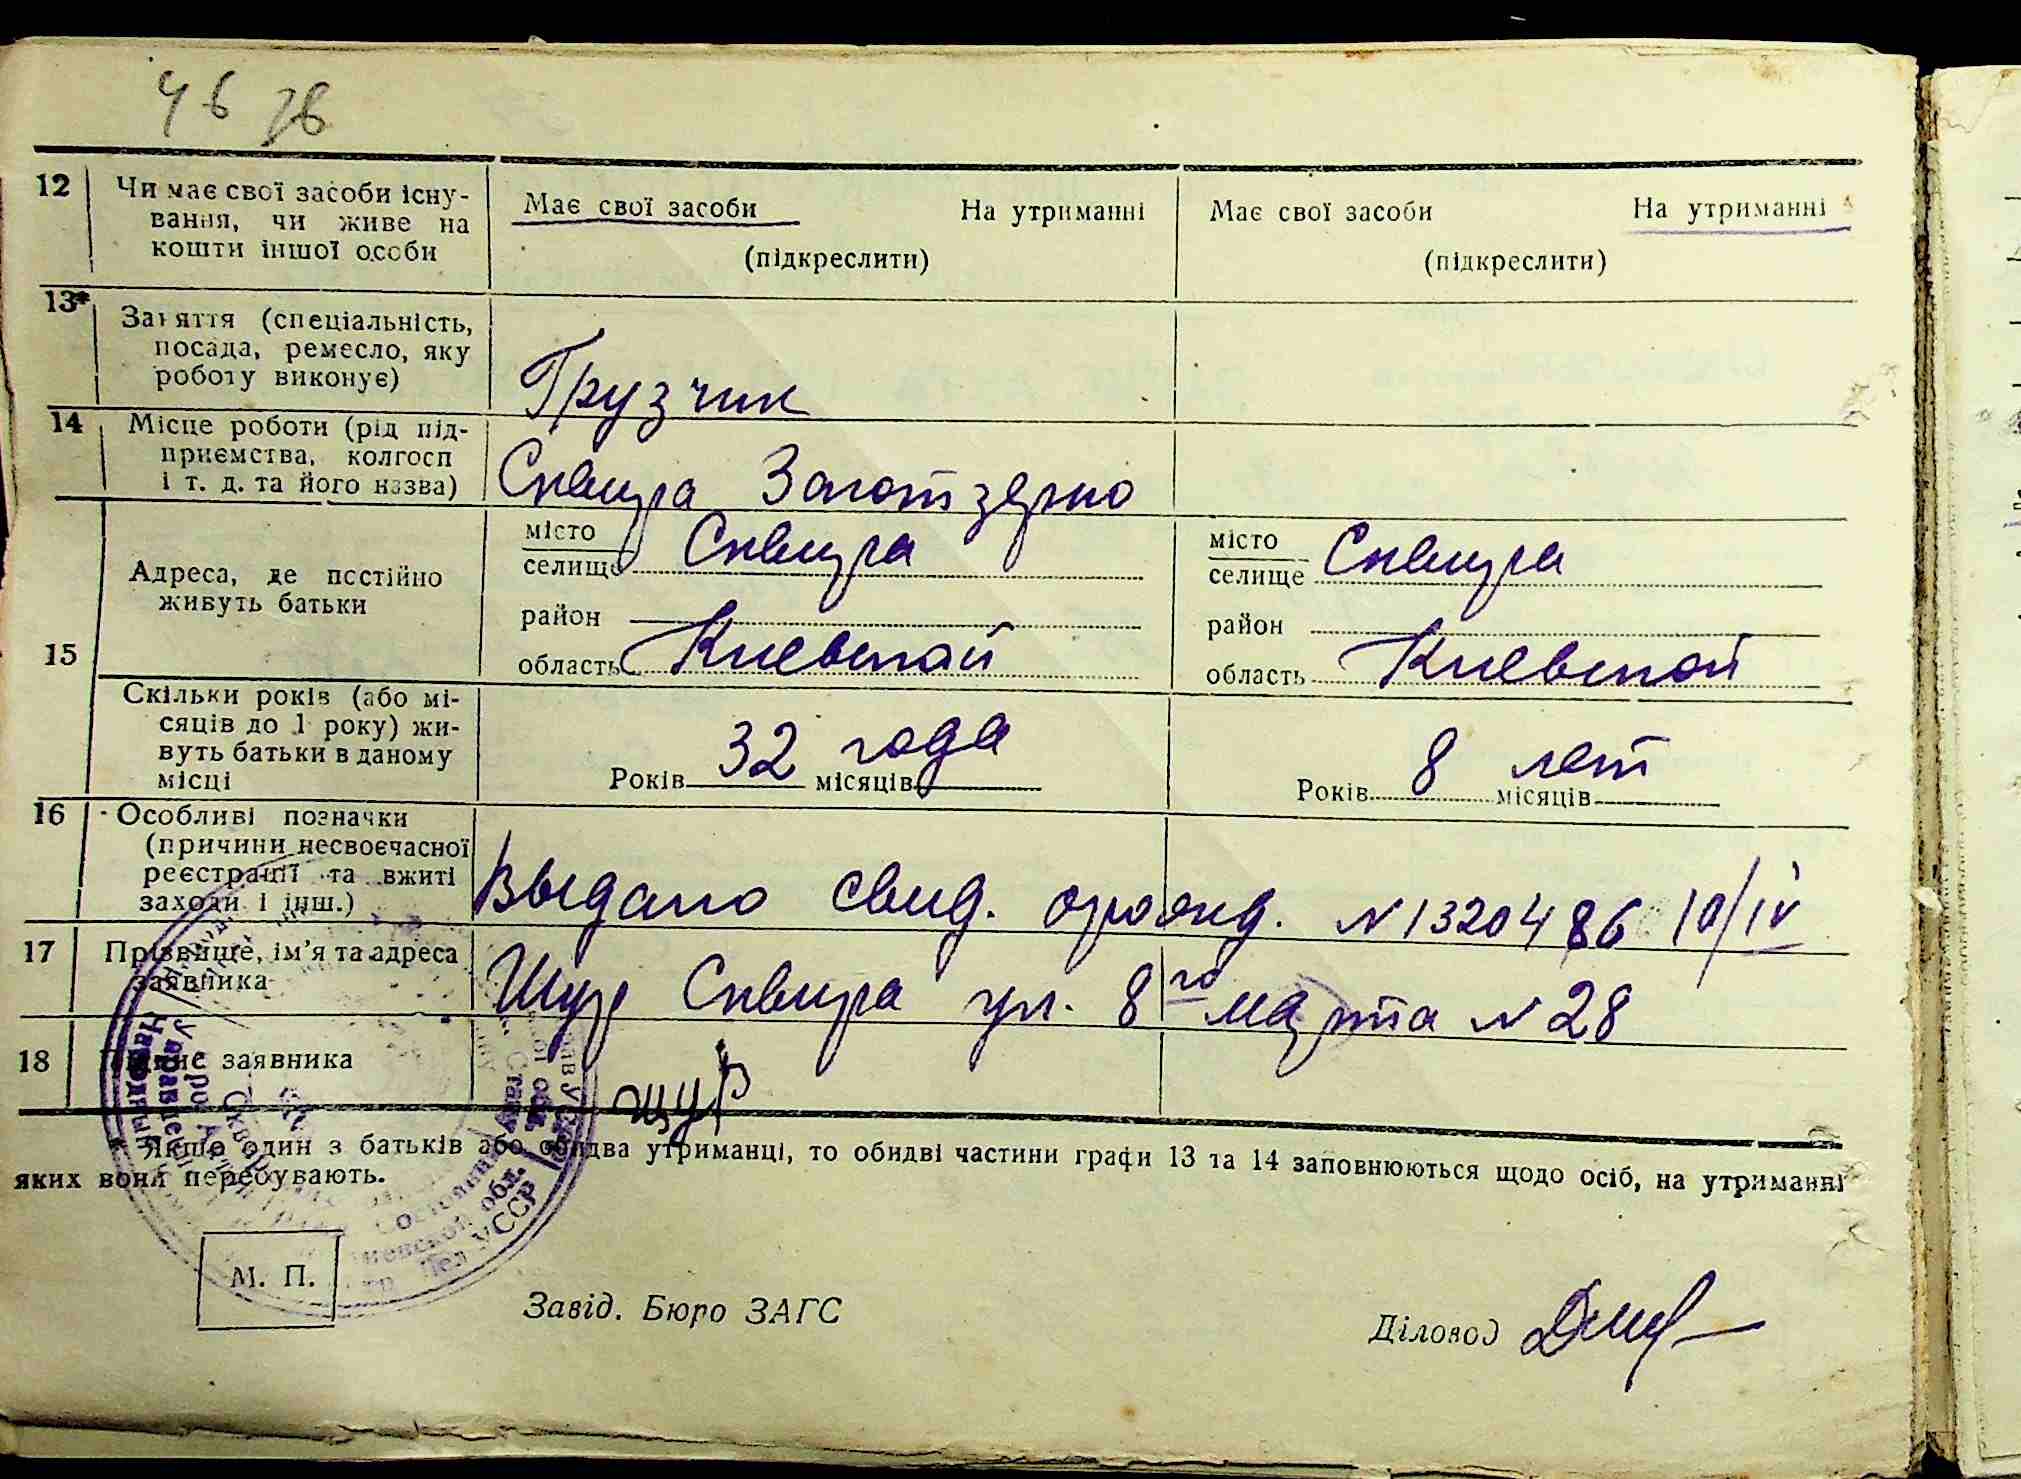 46 76
12 Чи має свої засоби існу-
вання, чи живе на
кошти іншої особи
Має свої засоби На утриманні
(підкреслити)
Має свої засоби На утриманні
(підкреслити)
13* Заняття (спеціальність,
посада, ремесло, яку
роботу виконує)
Грузчик
14 Місце роботи (рід під-
приємства, колгосп
і т. д. та його назва)
Сквира Заготзерно
15 Адреса, де постійно
живуть батьки
місто
селище Сквира
район
область Киевской
місто
селище Сквира
район
область Киевской
Скільки років (або мі-
сяців до 1 року) жи-
вуть батьки в даному
місці
Років 32 года місяців
Років 8 лет місяців
16 Особливі позначки
(причини несвоєчасної
реєстрації та вжиті
заходи і інш.)
Выдано свид. о рожд. N 1320486 10/IV
17 Прізвище, ім'я та адреса
заявника
Щур Сквира ул. 8го марта N 28
18 Підпис заявника
Щур
* Якщо один з батьків або обидва утриманці, то обидві частини графи 13 та 14 заповнюються щодо осіб, на утриманні
яких вони перебувають.
М. П.
Завід. Бюро ЗАГС
Діловод